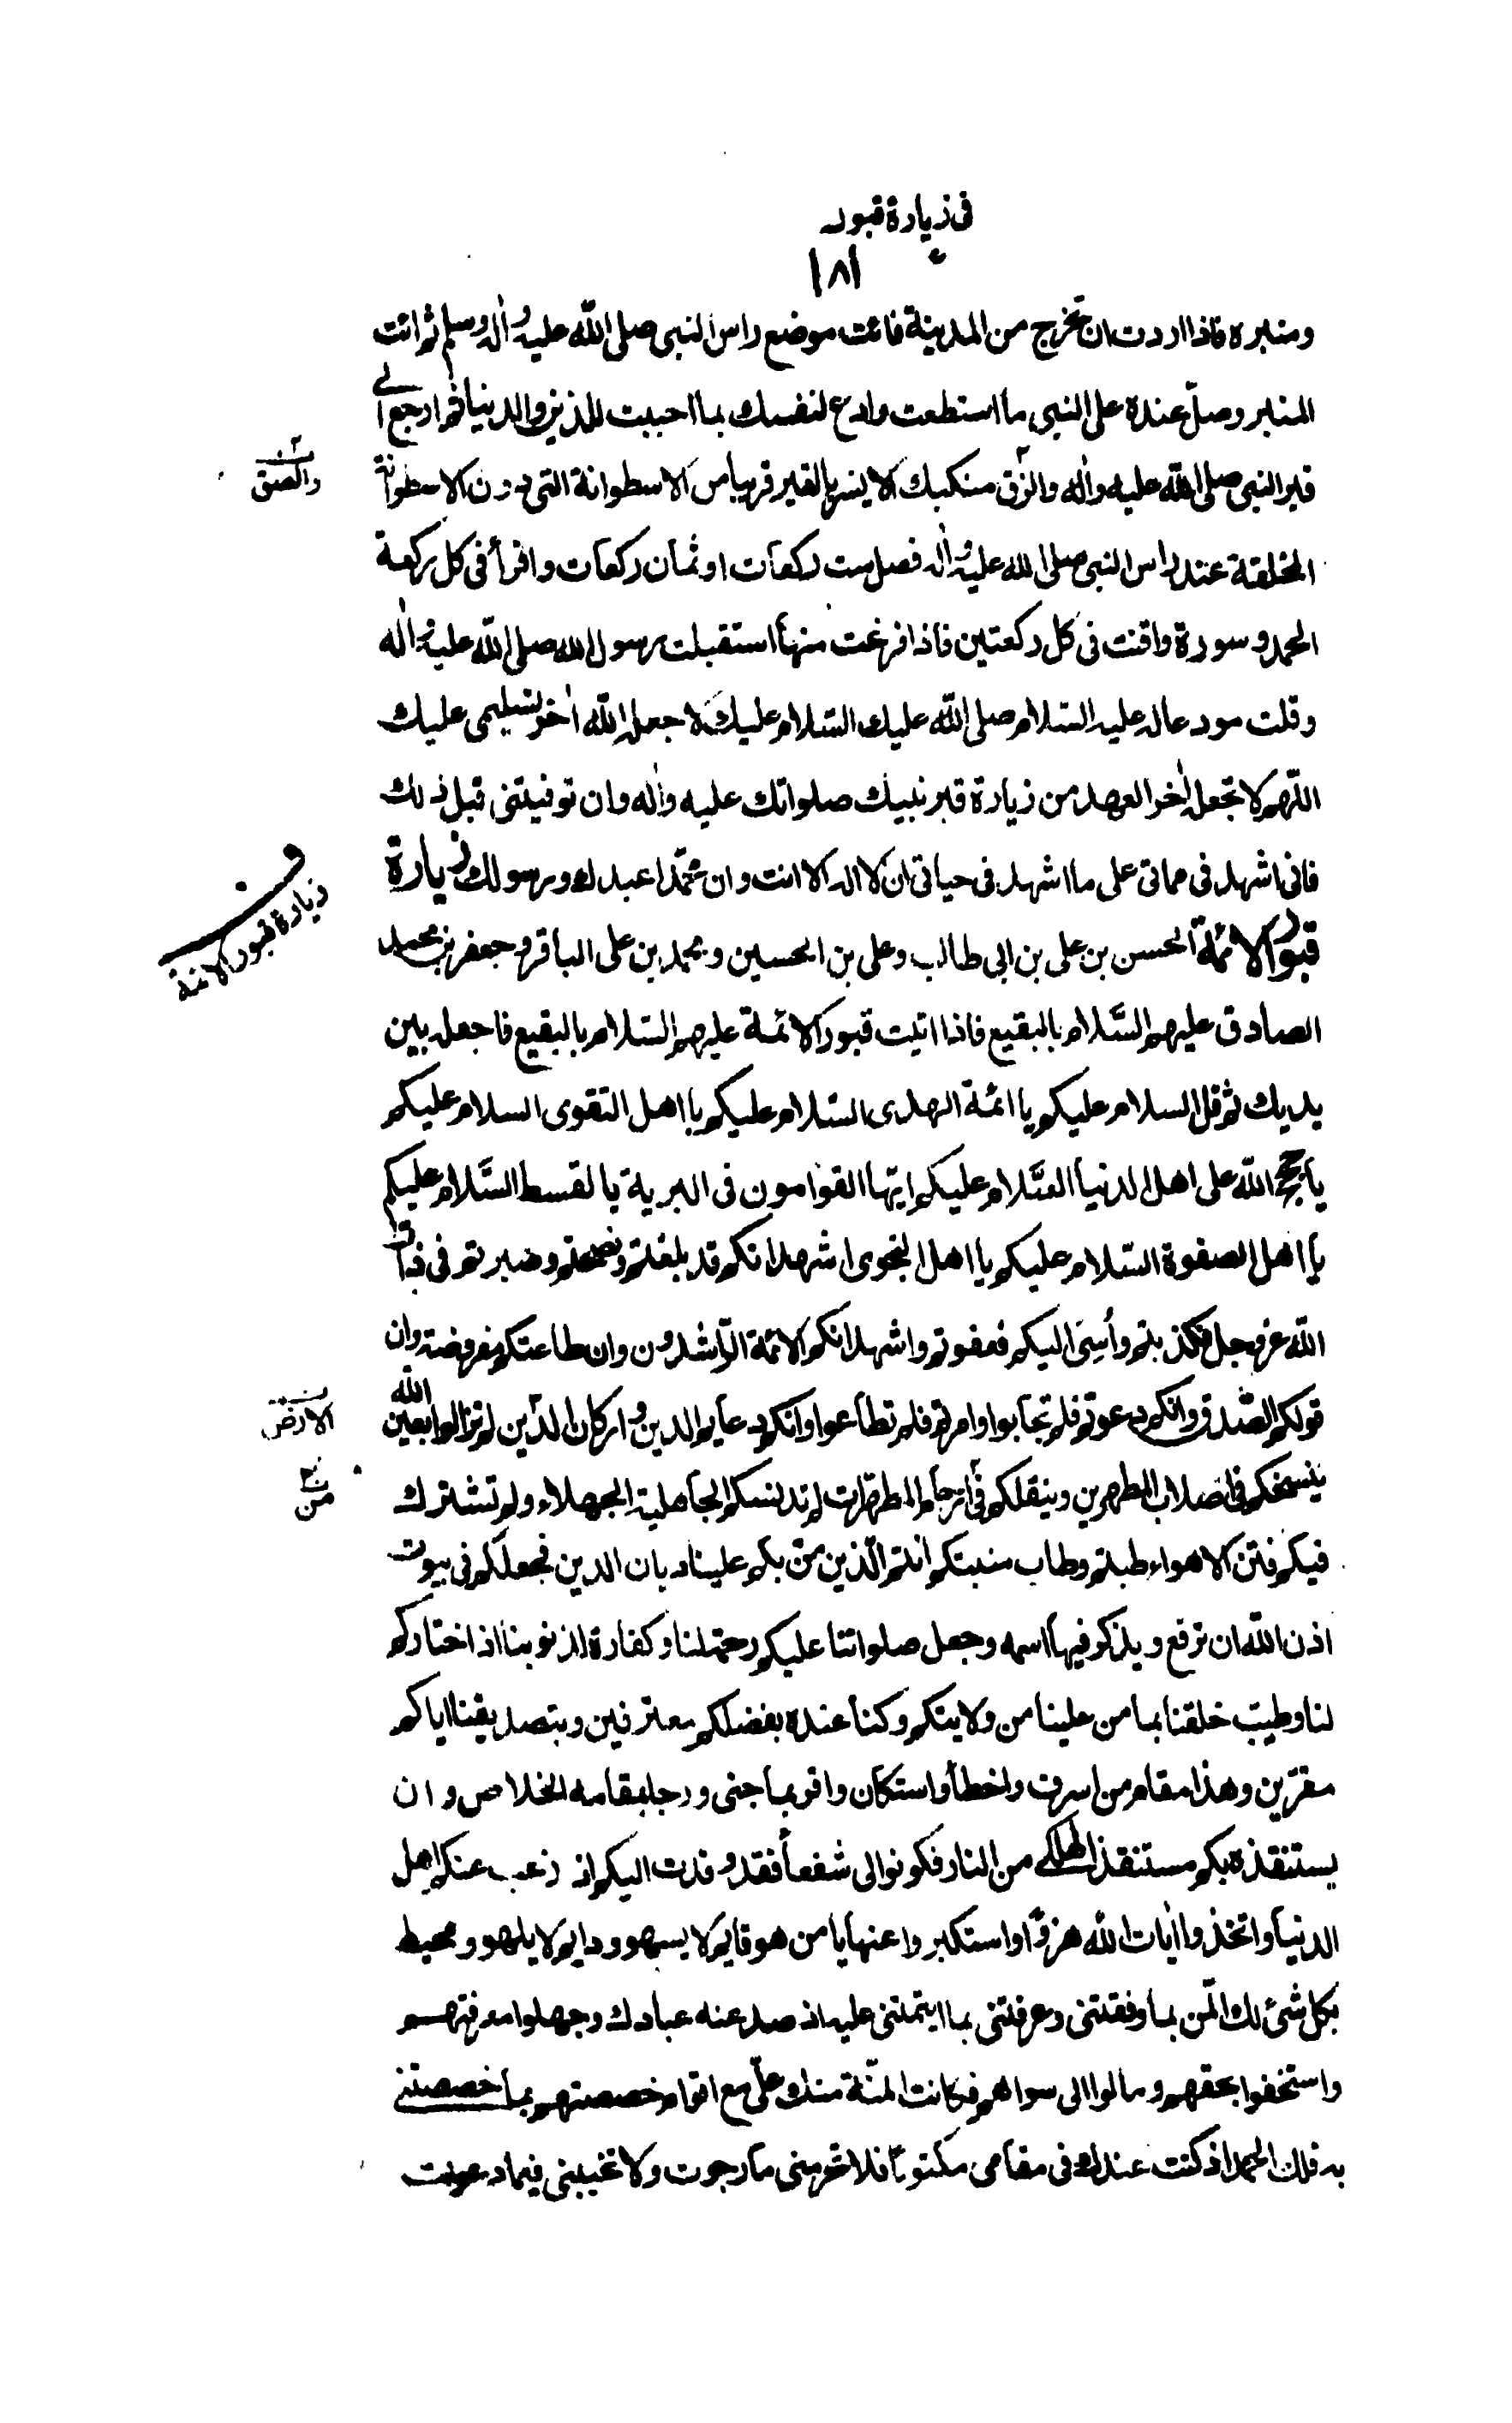 فى زيارة قبور
١٨١
ومنبره فاذا اردت ان تخرج من المدينة فائت موضع راس النبى صلى الله عليه واله وسلم ثم ائت
المنبر وصل عنده على النبى ما استطعت وادع لنفسك بما احببت للدين والدنيا ثم ارجع الى
قبر النبى صلى الله عليه واله والزق منكبك الايسر بالقبر قريبا من الاسطوانة التى دون الاسطوانة
والصق
المخلقة عند راس النبى صلى الله عليه واله فصل ست ركعات او ثمان ركعات واقرأ فى كل ركعة
الحمد وسورة واقنت فى كل ركعتين فاذا فرغت منها استقبلت رسول الله صلى الله عليه واله
وقلت مودعا له عليه السلام صلى الله عليك السلام عليك لا جعله الله اخر تسليمى عليك
اللهم لا تجعله اخر العهد من زيارة قبر نبيك صلواتك عليه واله وان توفيتنى قبل ذلك
فانى اشهد فى مماتى على ما اشهد فى حياتى ان لا اله الا انت وان محمدا عبدك ورسولك زيارة
قبور الائمة الحسن بن على بن ابى طالب وعلى بن الحسين ومحمد بن على الباقر وجعفر بن محمد
زيارة قبور الائمة
الصادق عليهم السلام بالبقيع فاذا اتيت قبور الائمة عليهم السلام بالبقيع فاجعله بين
يديك ثم قل السلام عليكم يا ائمة الهدى السلام عليكم يا اهل التقوى السلام عليكم
يا حجج الله على اهل الدنيا السلام عليكم ايتها القوامون فى البرية بالقسط السلام عليكم
يا اهل الصفوة السلام عليكم يا اهل النجوى اشهد انكم قد بلغتم ونصحتم وصبرتم فى ذات
الله عز وجل وكذبتم وأسئ اليكم فعفوتم واشهد انكم الائمة الراشدون وان طاعتكم مفروضة وان
قولكم الصدق وانكم دعوتم فلم تجابوا وامرتم فلم تطاعوا وانكم دعايم الدين واركان الدين لم تزالوا بعين الله
الارض
ينسخكم فى اصلاب المطهرين وينقلكم فى ارحام المطهرات لم تدنسكم الجاهلية الجهلاء ولم تشترك
من
فيكم فتن الاهواء طبتم وطاب منبتكم انتم الذين من بكم علينا ديان الدين فجعلكم فى بيوت
اذن الله ان ترفع ويذكر فيها اسمه وجعل صلواتنا عليكم رحمة لنا وكفارة لذنوبنا اذ اختاركم
لنا وطيب خلقنا بما من علينا من ولايتكم وكنا عنده بفضلكم معترفين وبتصديقنا اياكم
مقرين وهذا مقام من اسرف واخطأ واستكان واقر بما جنى ورجا بمقامه الخلاص وان
يستنقذه بكم مستنقذ الهلكى من النار فكونوا لى شفعاً فقد وفدت اليكم اذ رغب عنكم اهل
الدنيا واتخذوا ايات الله هزوًا واستكبروا عنها يا من هو قايم لا يسهو ودايم لا يلهو ومحيط
بكل شئ لك المن بما وفقتنى وعرفتنى بما ايتمنتنى عليه اذ صد عنه عبادك وجهلوا معرفتهم
واستخفوا بحقهم ومالوا الى سواهم فكانت المنة منك على مع اقوام خصصتهم بما خصصتنى
به فلك الحمد اذ كنت عندك فى مقامى مكتوباً فلا تحرمنى ما رجوت ولا تخيبنى فيما دعوت